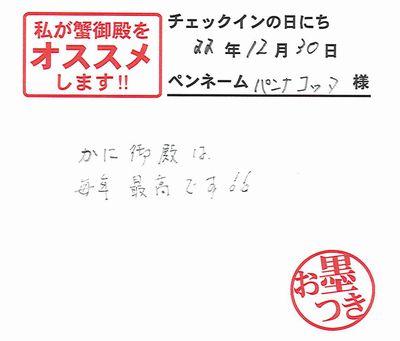 私が蟹御殿を
オススメ
します!!
チェックインの日にち
22年12月30日
ペンネーム パンナコッタ 様
かに御殿は
毎年最高です
お墨つき